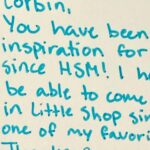 Corbin,
You have been
inspiration for
since HSM! I h
be able to come
in Little Shop sin
one of my favori